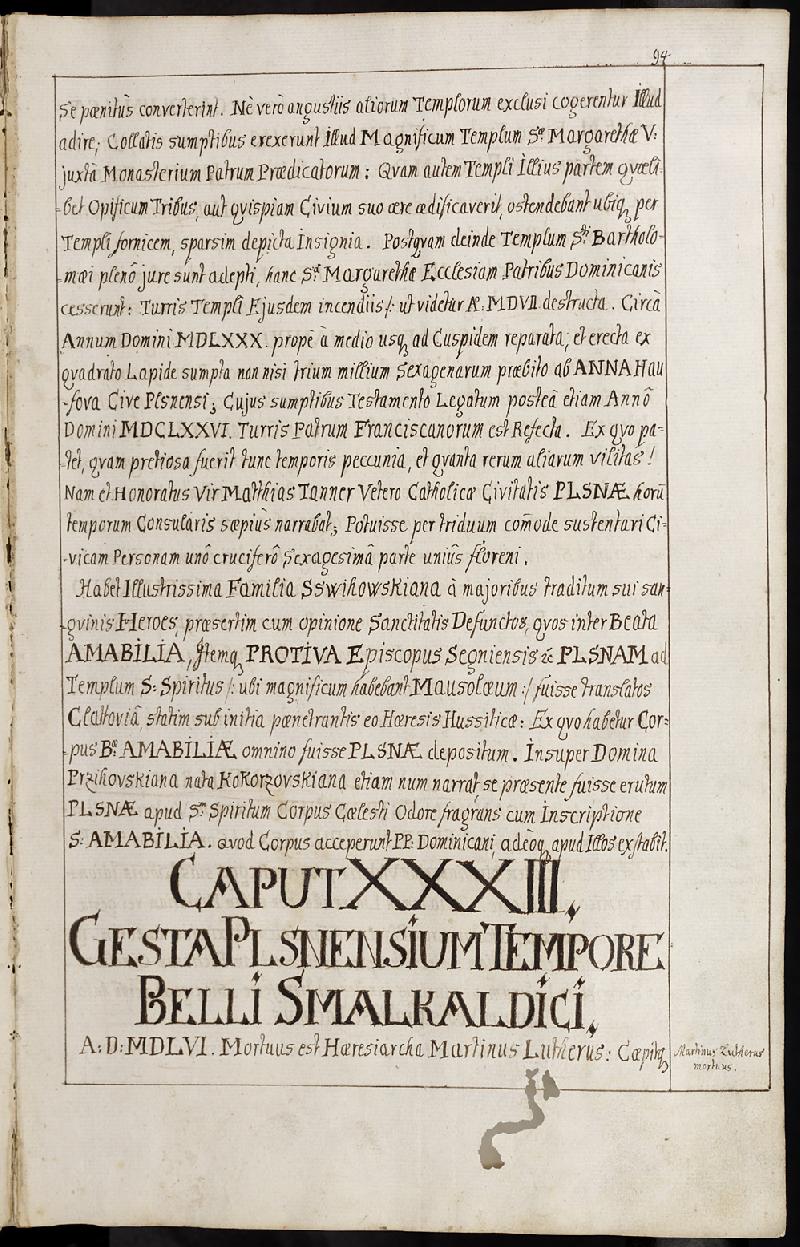 94
Se pænitus converterint. Nè verò angustiis aliorum Templorum exclusi cogerentur Illud
adire; Collatis sumptibus erexerunt Illud Magnificum Templum Sæ Margarethæ V:
juxtà Monasterium Patrum Prædicatorum: Qvam autem Templi Illius partem qvæli-
-bet Opificum Tribus, aut qvispiam Civium suo ære ædificaverit, ostendebant ubiq, per
Templi fornicem, sparsim depicta Insignia. Postqvam deinde Templum Sti Bartholo-
-mæi plenô jure sunt adepti, hanc Sæ Margarethæ Ecclesiam Patribus Dominicanis
cesserunt: Turris Templi Ejusdem incendiis /: ut videtur A: MDVII destructa. Circà
Annum Domini MDLXXX. propè à medio usq, ad Cuspidem reparata, et erecta ex
qvadrato Lapide sumpta non nisi trium millium Sexagenarum præbito ab ANNA Hau
-fova Cive Plsnensi; Cujus sumptibus Testamento Legatum posteà etiam Annô
Domini MDCLXXVI. Turris Patrum Franciscanorum est Refecta. Ex qvo pa-
-tet, qvam pretiosa fuerit tunc temporis peccunia, et qvanta rerum aliarum vilitas!
Nam et Honoratus Vir Matthias Tanner Vetero Catholicæ Civitatis PLSNÆ horū
temporum Consularis sæpiùs narrabat; Potuisse per triduum com̄ode sustentari Ci-
-vicam Personam unô cruciferô Sexagesimâ parte uniûs floreni.
Habet Illustrissima Familia Sswihowskiana à majoribus traditum sui san-
-gvinis Heroes, præsertim cum opinione Sanctitatis Defunctos, qvos inter Beata
AMABILIA, Itemq, PROTIVA Episcopus Segniensis &c PLSNAM ad
Templum S: Spiritus /: ubi magnificum habebant Mausolæum :/ fuisse translatos
Clattoviâ statim sub initia pænetrantis eo Hæresis Hussiticæ: Ex qvo habetur Cor-
-pus Bæ AMABILIÆ omnino fuisse PLSNÆ depositum. Insuper Domina
Przihovskiana nata Kokorzovskiana etiam num narrat se præsente fuisse erutum
PLSNÆ apud Sm Spiritum Corpus Cælesti Odore fragrans cum Inscriptione
S: AMABILIA. qvod Corpus acceperunt PP: Dominicani, adeòq, apud Illos exstabit.
CAPUT XXXIII.
GESTA PLSNENSIUM TEMPORE
BELLI SMALKALDICI.
A: D: MDLVI. Mortuus est Hæresiarcha Martinus Lutherus: Cæpitq,
Martinus Lutherus
mortuus.